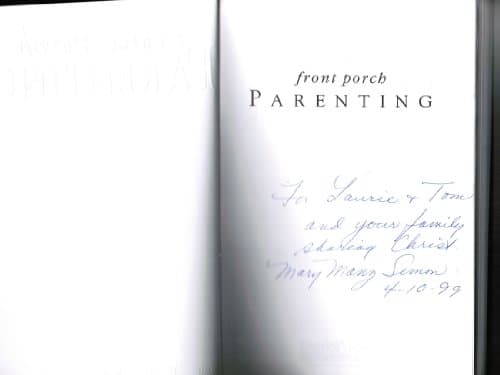 front porch
PARENTING
For Laurie & Tom
and your family
sharing Christ
Mary Manz Simon
4-10-99